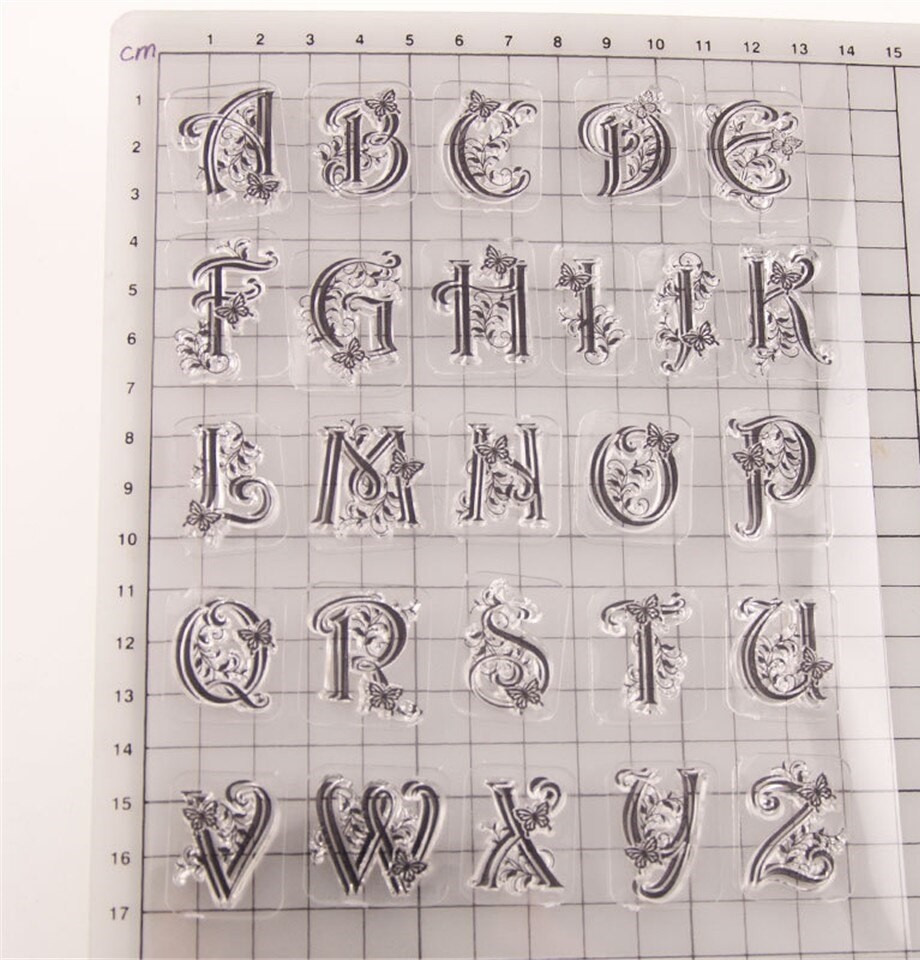 cm 1 2 3 4 5 6 7 8 9 10 11 12 13 14 15
1
A B C D E
2
3
4
F G H I J K
5
6
7
8
L M N O P
9
10
11
Q R S T U
12
13
14
15
V W X Y Z
16
17